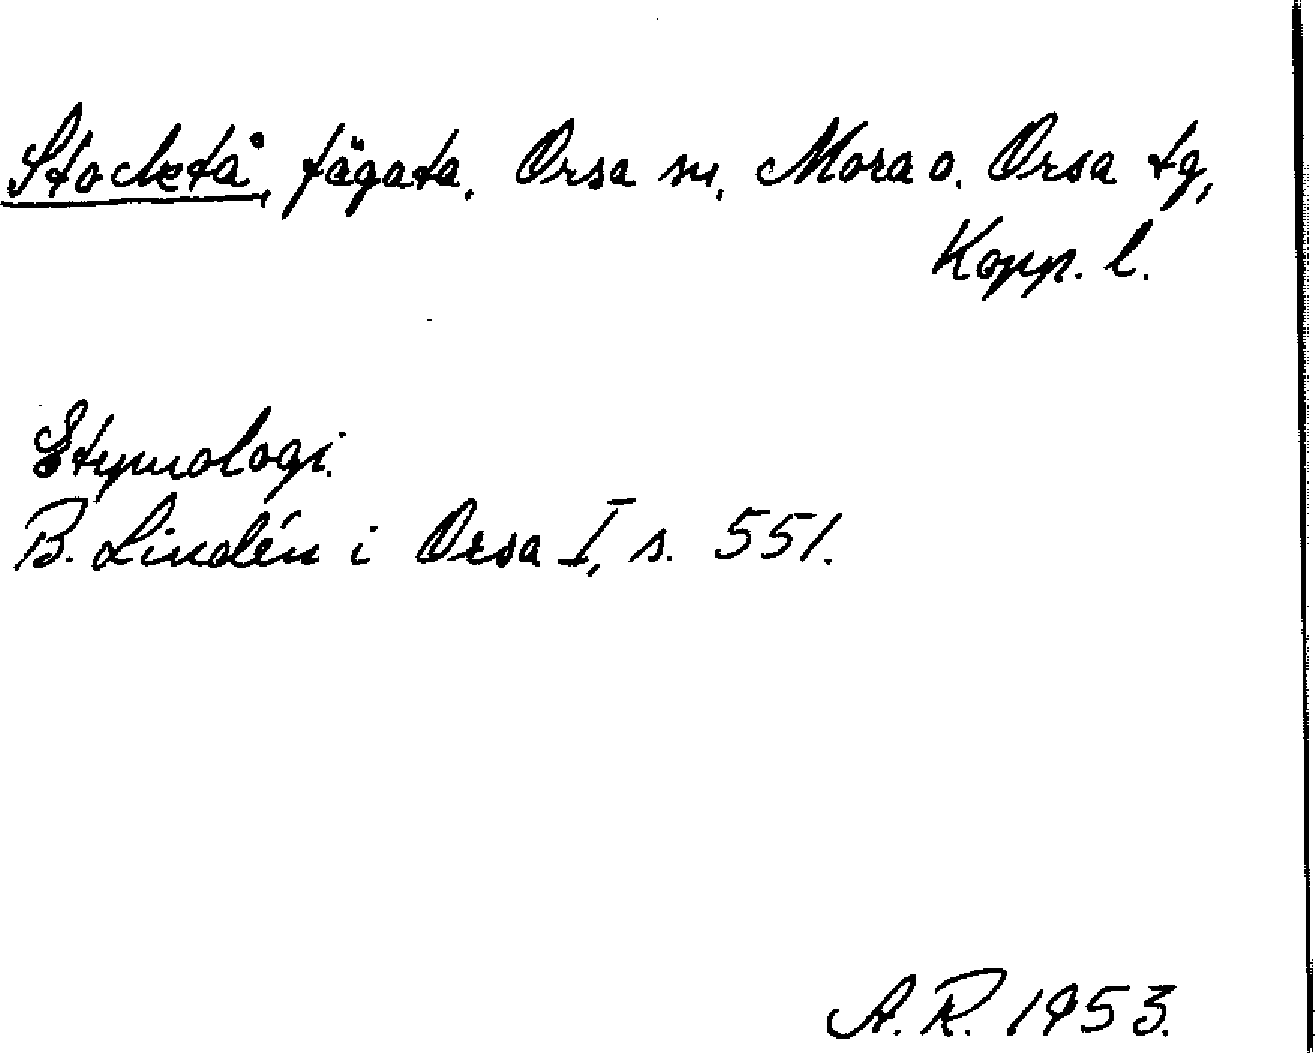 Stocketå, fägata, Orsa sn, Mora o. Orsa tg,
Kopp. l.
Etymologi.
B. Lindén i Orsa I, s. 551.
A. R. 1953.